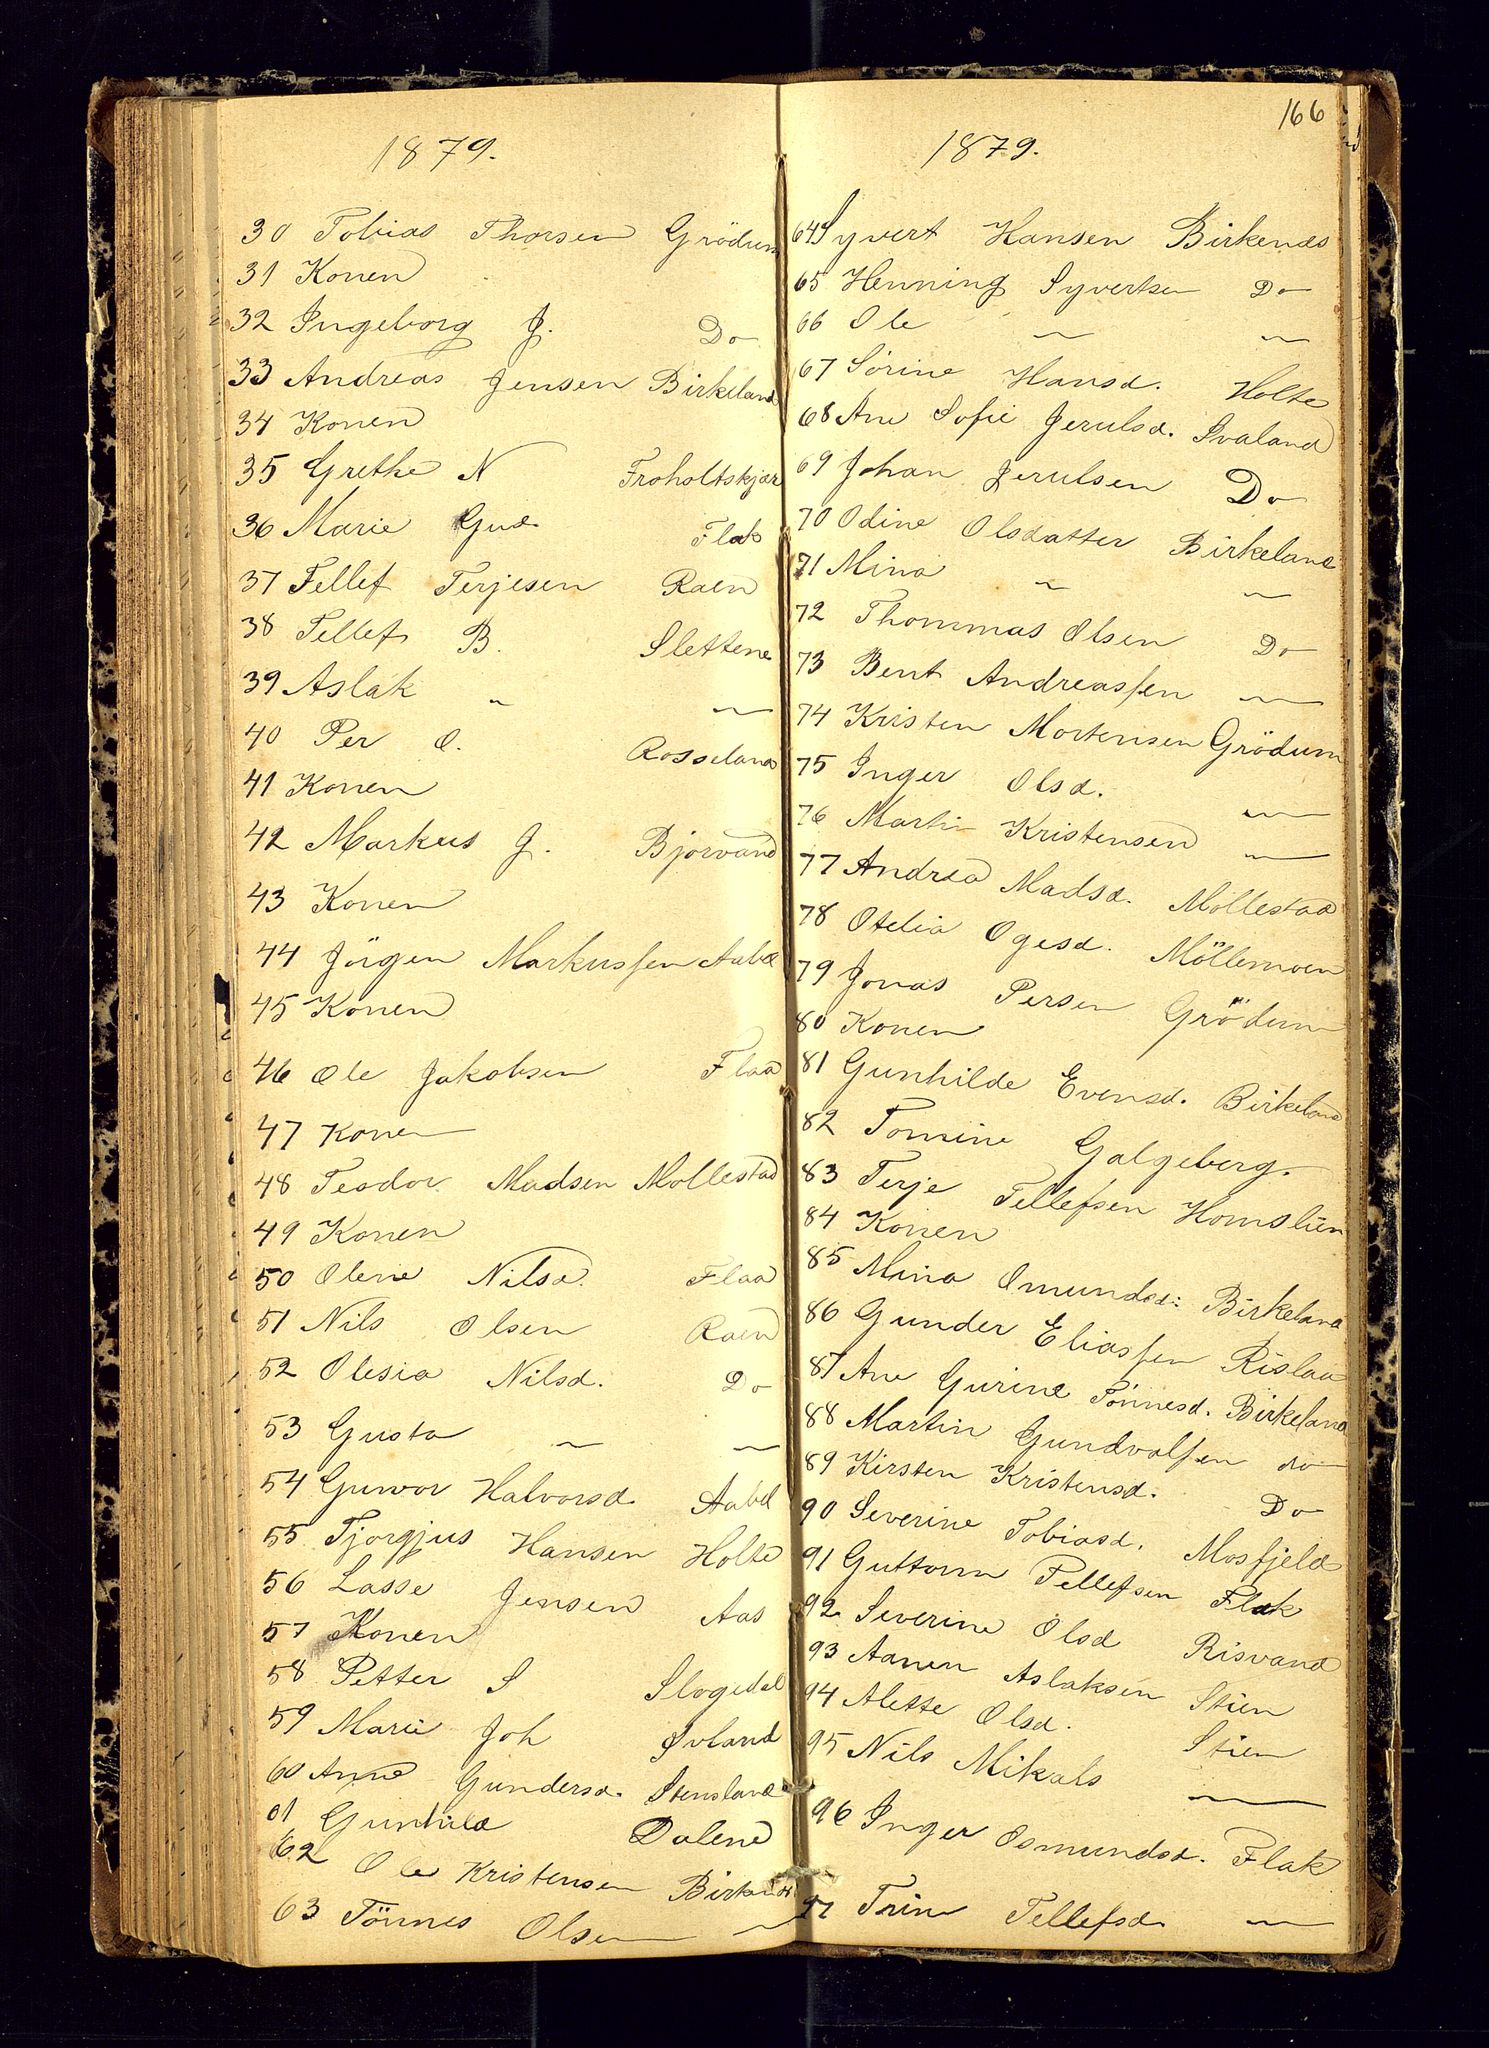 1879.
30 Tobias Thorsen Grödum
31 Konen
32 Ingeborg J. Do
33 Andreas Jensen Birkeland
34 Konen
35 Grethe N Froholtskjær
36 Marie Gud. Flak
37 Tellef Terjesen Raen
38 Tellef B. Slettene
39 Aslak " —
40 Per O. Rosseland
41 Konen
42 Markus J. Bjorvand
43 Konen
44 Jörgen Markussen Aabel
45 Konen
46 Ole Jakobsen Flaa
47 Konen
48 Teodor Madsen Mollestad
49 Konen
50 Olene Nilsd. Flaa
51 Nils Olsen Raen
52 Olesia Nilsd. Do
53 Gusta — —
54 Guwor Halvorsd. Aabel
55 Tjorgjus Hansen Holte
56 Lasse Jensen Aas
57 Konen
58 Petter S Slogedal
59 Marie Joh Øvland
60 Anne Gundersd. Stensland
61 Gunhild Dalene
62 Ole Kristensen
63 Tönnes Olsen —
166
1879.
64 Syvert Hansen Birkenæs
65 Henning Syvertsen Do
66 Ole — —
67 Sörine Hansd. Holte
68 Ane Sofie Jerulsd. Svaland
69 Johan Jerulsen Do
70 Odine Olsdatter Birkeland
71 Mina — —
72 Thommas Olsen Do
73 Bent Andreassen —
74 Kristen Mortensen Grödum
75 Inger Olsd. —
76 Martin Kristensen —
77 Andrea Madsd. Mollestad
78 Otelia Ogesd. Möllemoen
79 Jonas Persen Grödum
80 Konen
81 Gunhilde Evensd. Birkeland
82 Tomine Galgeberg.
83 Terje Tellefsen Homslien
84 Konen
85 Mina Omundsd: Birkeland
86 Gunder Eliassen Rislaa
87 Ane Gurine Tönnesd. Birkeland
88 Martin Gundvalsen do
89 Kirsten Kristensd. Do
90 Severine Tobiasd. Mosfjeld
91 Guttorm Tellefsen Flak
92 Severine Olsd Risvand
93 Aanen Aslaksen Stien
94 Alette Olsd. Stien
95 Nils Mikals —
96 Inger Osmundsd. Flak
97 Trine Tellefsd. —